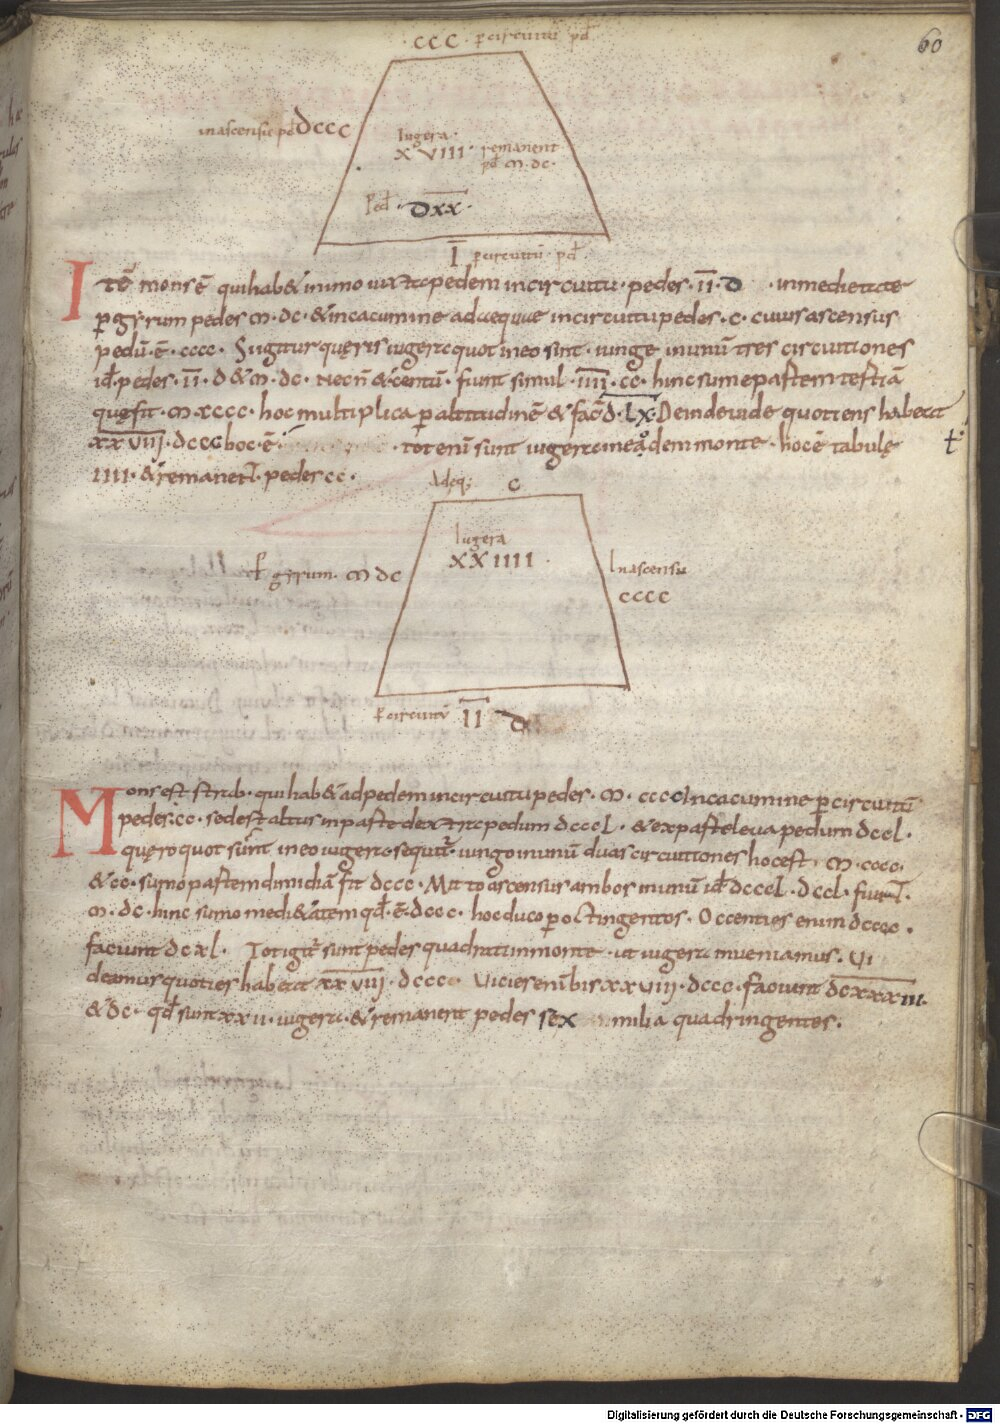 60
·CCC· p circuitū pđ
in ascensu pđ DCCC
Iugera·
XVIII· remanent
pđ ·M·DC·
Ped· DXX·
I p circuitū· pđ·
Itē mons ē qui hab& in imo iuxta pedem in circuitu· pedes· II· D · in medietate
p gyrum pedes M·DC· & in cacumine ad aeque in circuitu pedes ·C· cuius ascensus
pedū·ē·CCCC· Si igitur quęris iugera quot in eo sint· iunge in unū tres circuitiones
id· pedes· II· D & M·DC· necn & centū· fiunt simul· IIII·CC· hinc sume partem tertiā
quę fit· M·XCCC· hoc multiplica p altitudinē & fac D·LX· Deinde vide quotiens habeat
XXVIII·DCCC hoc·ē· · tot enī sunt iugera in eadem monte· hoc ē tabulę
IIII·& remanent· pedes CC·
Adęq; C
Iugera
XXIIII·
P gyrum· M DC
In ascensu
CCCC
P circuitū II D
Mons est strab· qui hab& ad pedem in circuitu pedes· M· CCCC In cacumine p circuitū
pedes·CC· sed est altus in parte dextra pedum DCCCL· & ex parte leua pedum DCCL·
quęro quot sunt in eo iugera sequitur· iungo in unū duas circuitiones hoc est· M·CCCC·
& CC· sumo partem dimidiā fit DCCC· Mitto ascensus ambos in unū id DCCCL·DCCL· fiunt
M·DC· hinc sumo medi&atem qđ·ē·DCCC· hoc duco p octingentos· Occenties enim DCCC·
faciunt DCXL· Tot igit sunt pedes quadrati in monte· ut iugera inueniamus· Vi
deamus quoties habeat XXVIII·DCCC· Vicies enī bis XXVIII·DCCC· faciunt DCXXXIII·
& DC· qđ sunt XXII· iugera· & remanent pedes sex milia quadringentes·
Digitalisierung gefördert durch die Deutsche Forschungsgemeinschaft - DFG